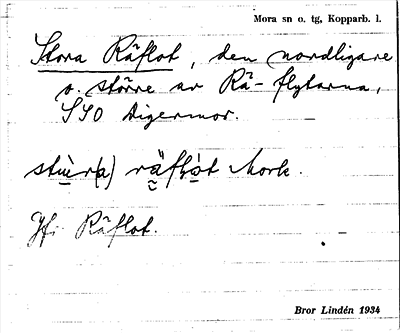 Mora sn o. tg, Kopparb. l.
Stora Räflot, den nordligare
o. större av Rä-flytarna,
SSO Digermor.
stu̠r(a) rä̰flo̠t Mork.
Jfr Räflot.
Bror Lindén 1934